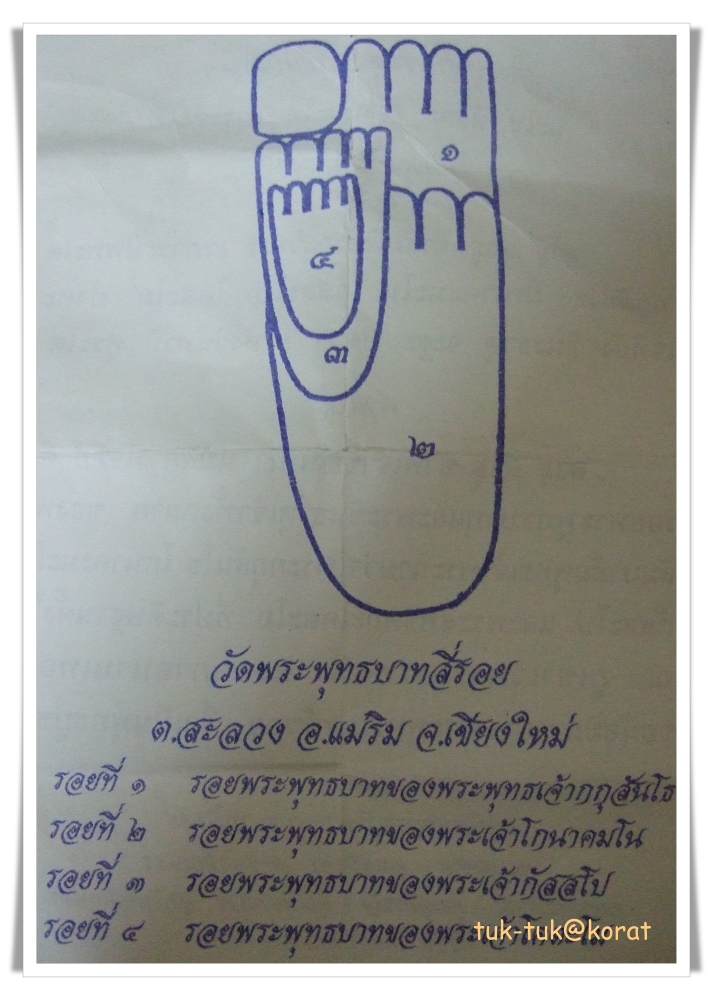 ๑
๔
๓
๒
วัดพระพุทธบาทสี่รอย
ต.สะลวง อ.แม่ริม จ.เชียงใหม่
รอยที่ ๑ รอยพระพุทธบาทของพระพุทธเจ้ากกุสันโธ
รอยที่ ๒ รอยพระพุทธบาทของพระเจ้าโกนาคมโน
รอยที่ ๓ รอยพระพุทธบาทของพระเจ้ากัสสโป
รอยที่ ๔ รอยพระพุทธบาทของพระเจ้า
tuk-tuk@korat